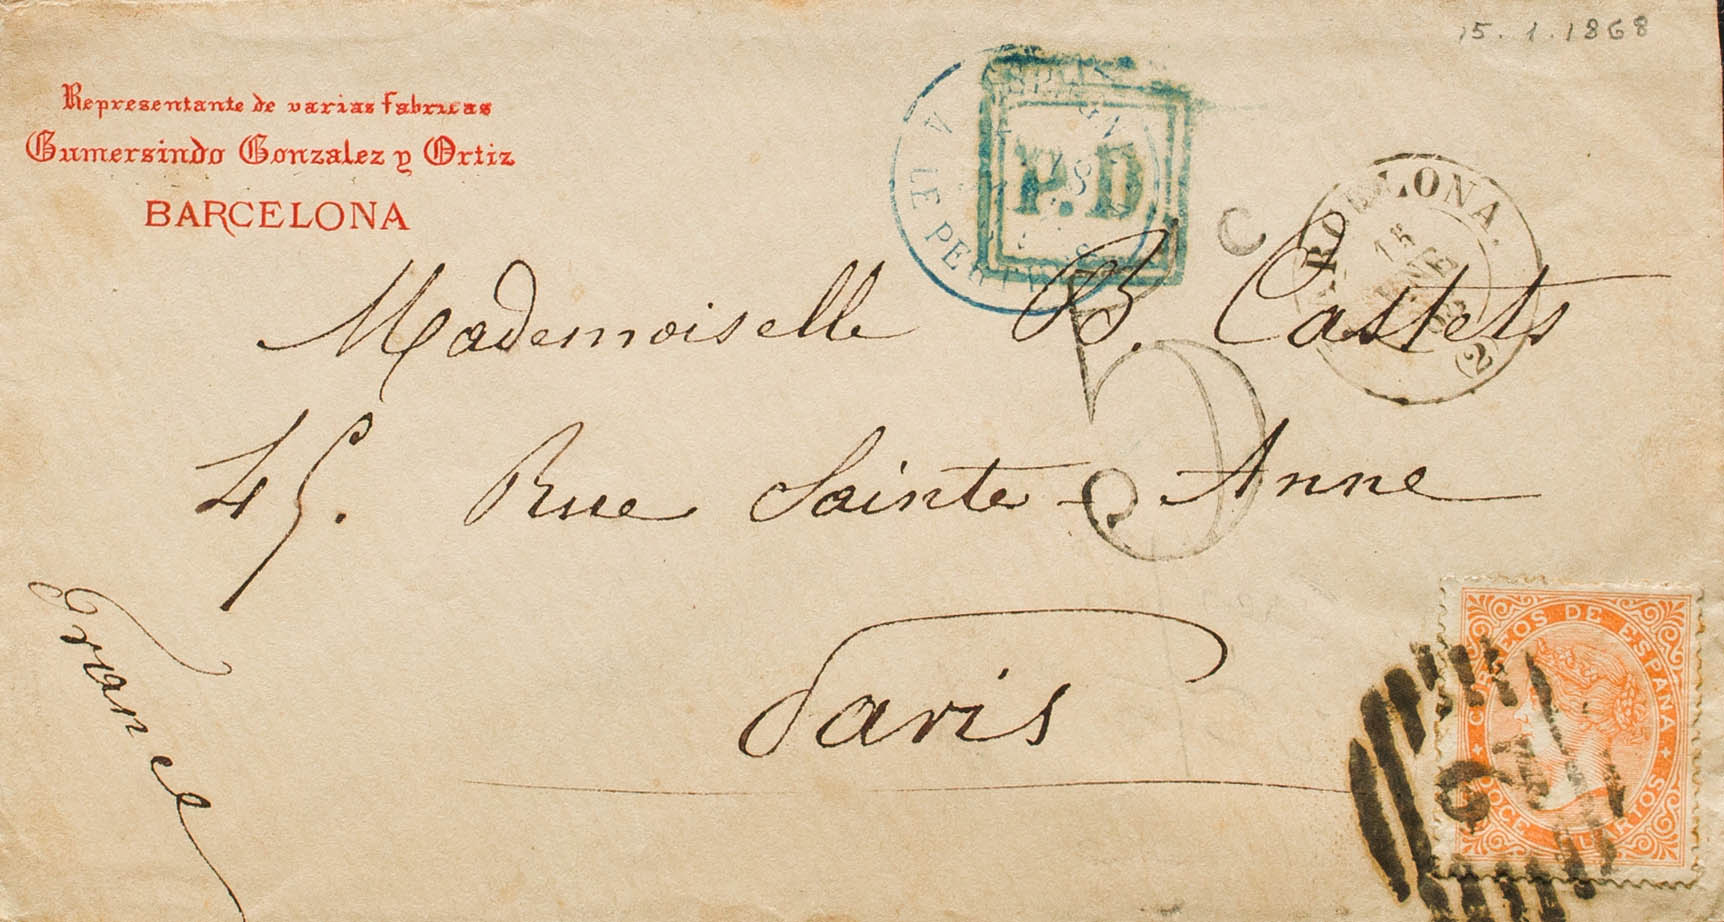 15.1.1868
Representante de varias fabricas
Gumersindo Gonzalez y Ortiz
BARCELONA
P.D
LE PERTHUS
C
BARCELONA.
15
ENE
68
(2)
5
Mademoiselle B. Castets
45. Rue Sainte-Anne
Paris
France
CORREOS DE ESPAÑA
DOCE CUARTOS